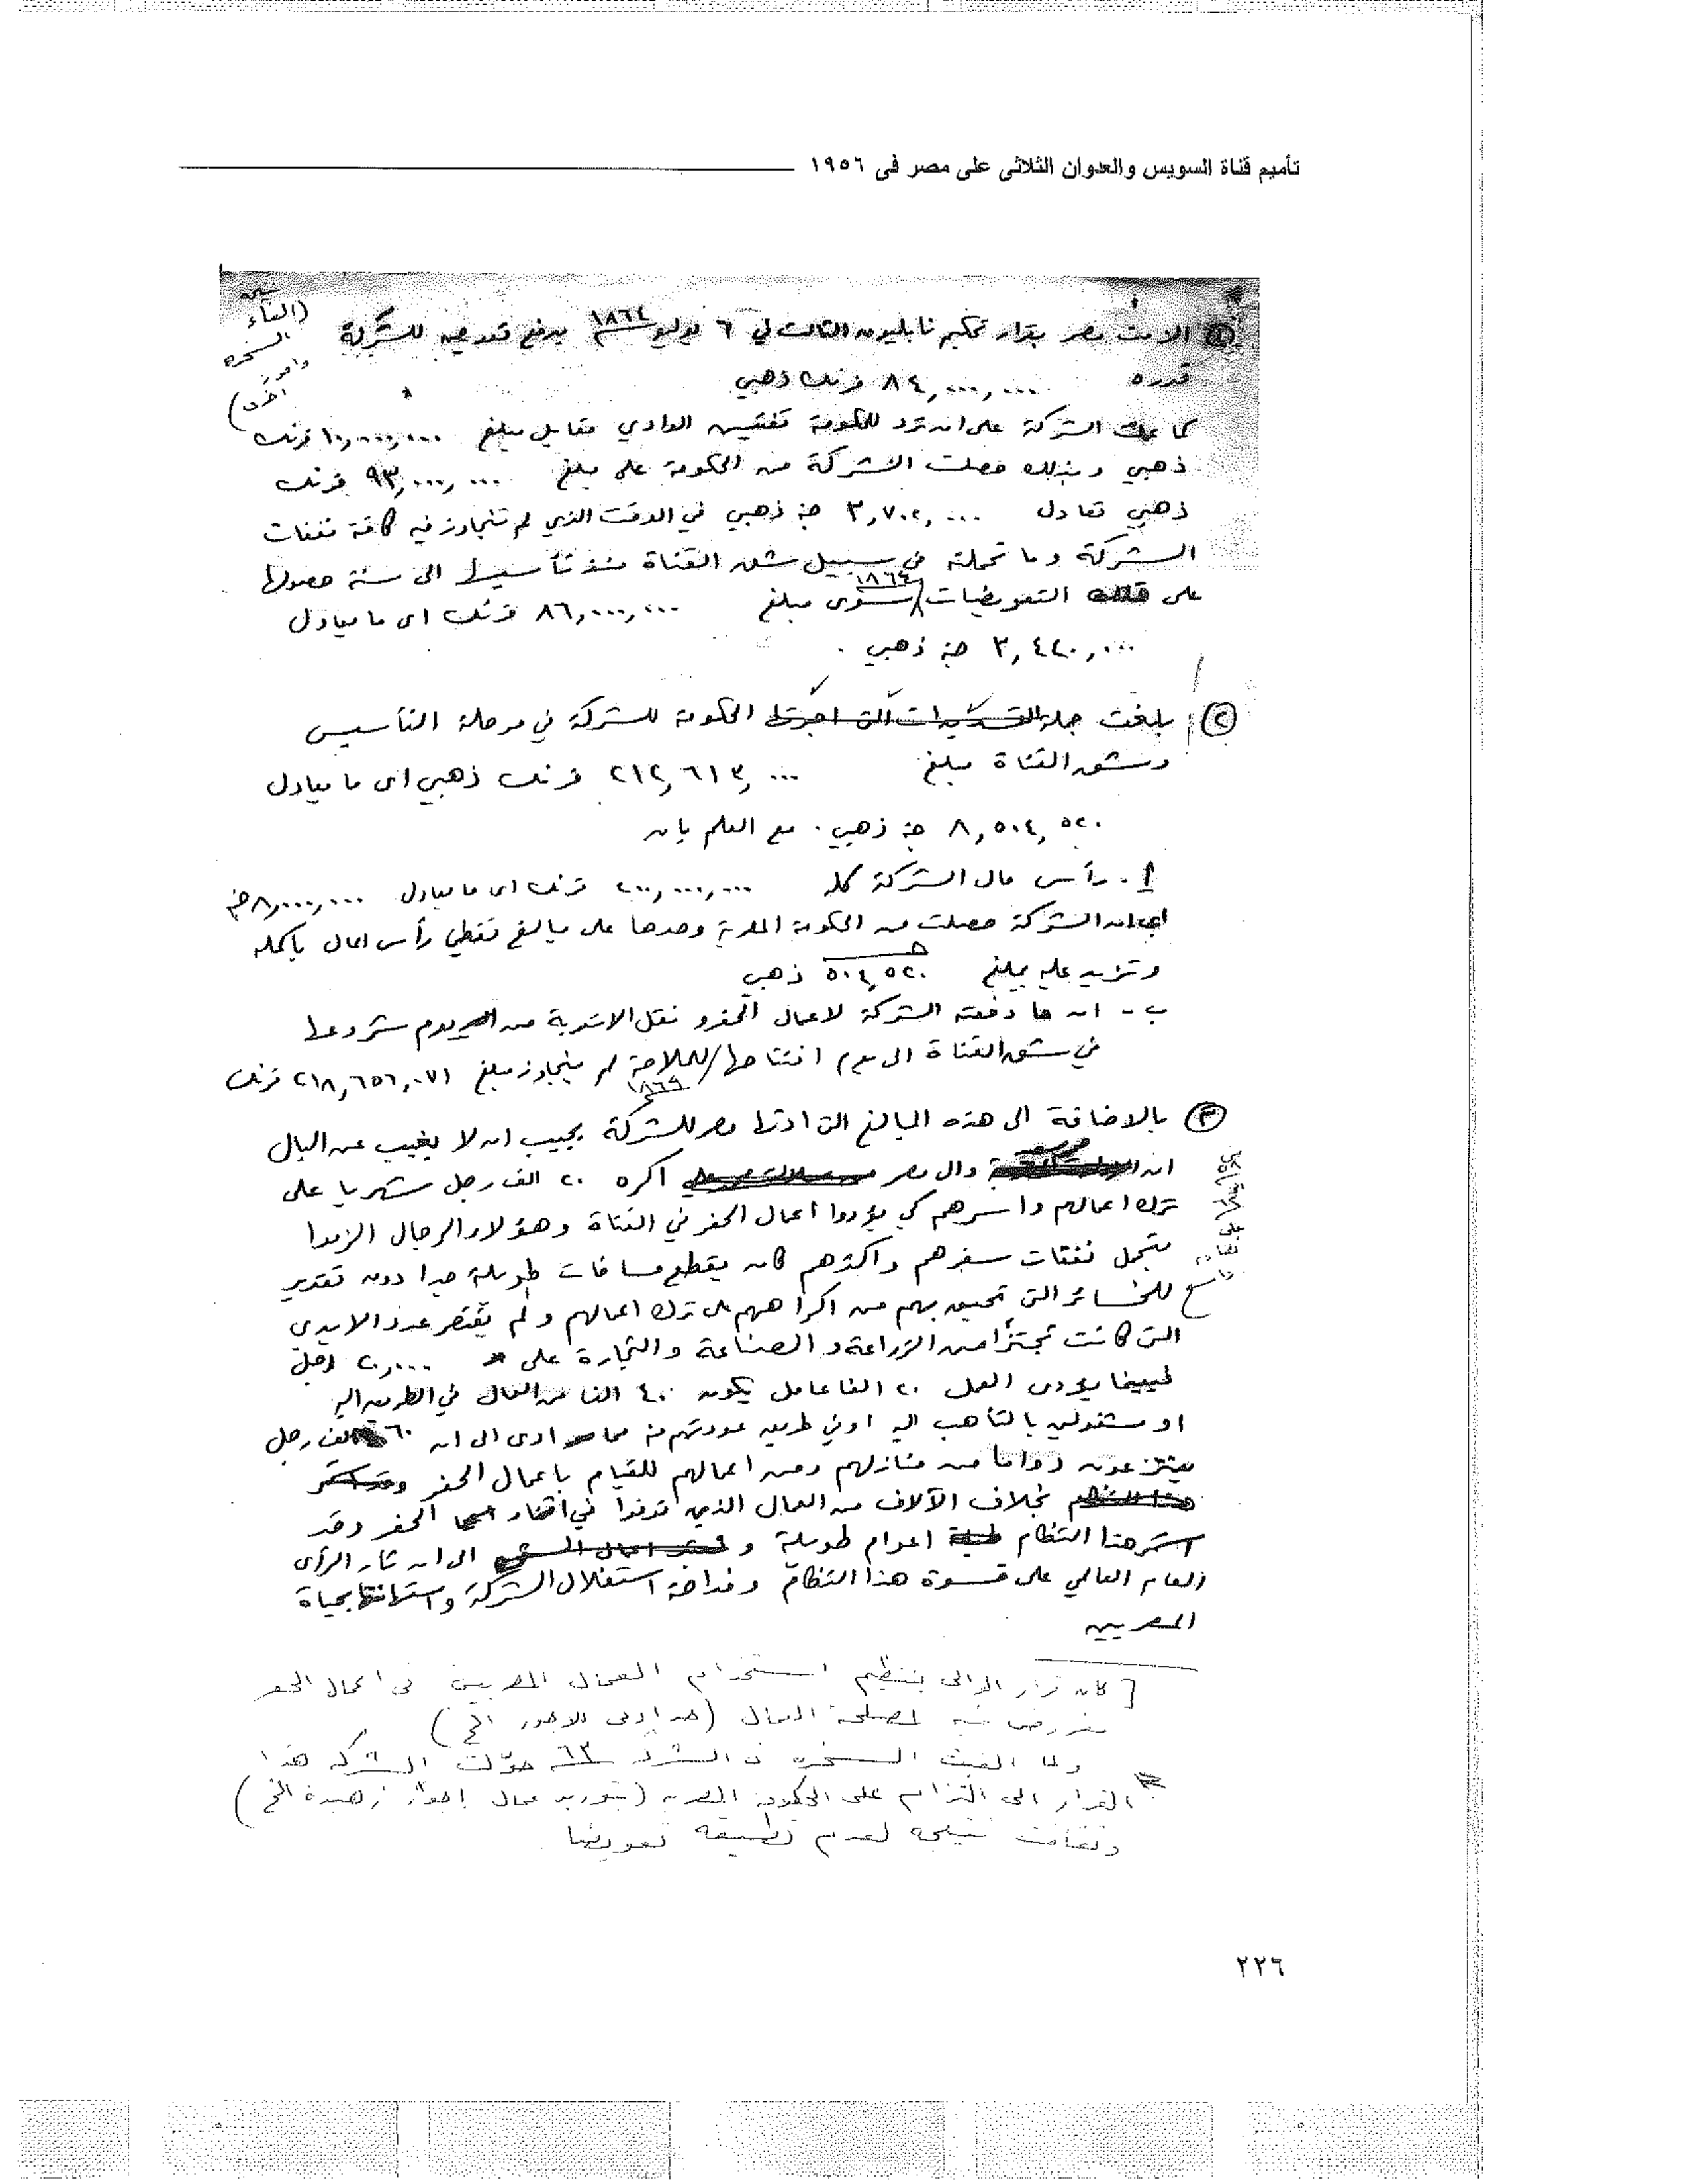 تأميم قناة السويس والعدوان الثلاثى على مصر فى ١٩٥٦
① الزمت مصر بقرار تحكيم نابليون الثالث في ٦ يوليو ١٨٦٤ بدفع تعويض للشركة
(الغاء
السخره
وامور
اخرى)
قدره ٨٤,٠٠٠,٠٠٠ فرنك ذهبي
كما عملت الشركة على ان ترد للحكومة تفتيش الوادي مقابل مبلغ ١٠,٠٠٠,٠٠٠ فرنك
ذهبي وبذلك حصلت الشركة من الحكومة على مبلغ ٩٣,٠٠٠,٠٠٠ فرنك
ذهبي تعادل ٣,٧٠٢,٠٠٠ جنيه ذهبي في الوقت الذي لم تتجاوز فيه كافة نفقات
الشركة وما تحملته في سبيل شق القناة منذ تأسيسها الى سنة حصولها
على التعويضات ١٨٦٤ سوى مبلغ ٨٦,٠٠٠,٠٠٠ فرنك اى ما يعادل
٣,٤٤٠,٠٠٠ جنيه ذهبي .
② بلغت جملة التقديرات التى اجرتها الحكومة للشركة في مرحلة التأسيس
وشق القناة مبلغ ٢١٢,٦١٣,٠٠٠ فرنك ذهبي اى ما يعادل
٨,٥٠٤,٥٢٠ جنيه ذهبي . مع العلم بان
أ . رأس مال الشركة كله ٢٠٠,٠٠٠,٠٠٠ فرنك اى ما يعادل ٨,٠٠٠,٠٠٠ جنيه
اى ان الشركة حصلت من الحكومة المصرية وحدها على مبالغ تغطي رأس المال باكمله
وتزيد عليه بمبلغ ٥٠٤,٥٢٠ ذهبي
ب - ان ما دفعته الشركة لاعمال الحفر و نقل الاتربة من يوم شروعها
في شق القناة الى يوم افتتاحها للملاحة ١٨٦٩ لم يتجاوز مبلغ ٢١٨,٦٥٦,٠٧١ فرنك
③ بالاضافة الى هذه المبالغ التى ادتها مصر للشركة يجب ان لا يغيب عن البال
ان والى مصر اكره ٢٠ الف رجل شهريا على
ترك اعمالهم واسرهم كي يؤدوا اعمال الحفر في القناة وهؤلاء الرجال الزموا
بتحمل نفقات سفرهم واكثرهم كان يقطع مسافات طويلة جدا دون تقدير
للخسائر التى تحيق بهم من اكراههم على ترك اعمالهم ولم يقتصر عدد الايدي
التى كانت تجتزأ من الزراعة و الصناعة والتجارة على ٢٠,٠٠٠ رجل
فبينما يؤدى العمل ٢٠ الفا عامل يكون ٤٠ الفا من العمال في الطريق اليه
او مشغولين بالتأهب اليه او في طريق عودتهم منه مما ادى الى ان ٦٠ الف رجل
ينتزعون دواما من منازلهم ومن اعمالهم للقيام باعمال الحفر
بخلاف الآلاف من العمال الذين توفوا في اثناء الحفر وقد
استمر هذا النظام اعوام طويلة و الى ان ثار الرأى
العام العالمي على قسوة هذا النظام وفداحة استغلال الشركة واستهانتها بحياة
المصريين
[ كان قرار الوالى بتنظيم استخدام العمال المصريين فى اعمال الحفر
مفروض فيه لمصلحة العمال (حد ادنى للاجور الخ)
ولما الغيت السخره ٦٣ حولت الشركة هذا
القرار الى التزام على الحكومة المصرية (بتوريد عمال باجور زهيدة الخ)
وتقاضت نتيجة لعدم تطبيقه تعويضا .
٢٢٦